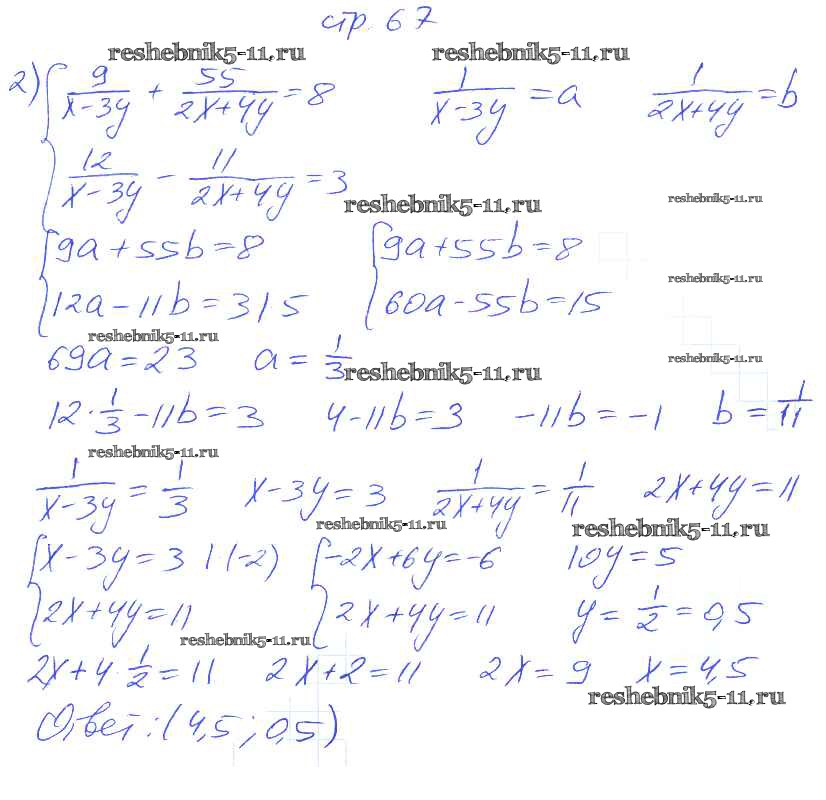 стр. 67
reshebnik5-11.ru reshebnik5-11.ru
2) { 9/(x-3y) + 55/(2x+4y) = 8 1/(x-3y) = a 1/(2x+4y) = b
12/(x-3y) - 11/(2x+4y) = 3
reshebnik5-11.ru reshebnik5-11.ru
{ 9a+55b=8 { 9a+55b=8
reshebnik5-11.ru
12a-11b=3 | 5 60a-55b=15
reshebnik5-11.ru
69a=23 a=1/3 reshebnik5-11.ru
reshebnik5-11.ru
12·1/3-11b=3 4-11b=3 -11b=-1 b=1/11
reshebnik5-11.ru
1/(x-3y)=1/3 x-3y=3 1/(2x+4y)=1/11 2x+4y=11
reshebnik5-11.ru reshebnik5-11.ru
{ x-3y=3 | (-2) { -2x+6y=-6 10y=5
2x+4y=11 2x+4y=11 y=1/2=0,5
reshebnik5-11.ru
2x+4·1/2=11 2x+2=11 2x=9 x=4,5
reshebnik5-11.ru
Ответ: (4,5; 0,5)